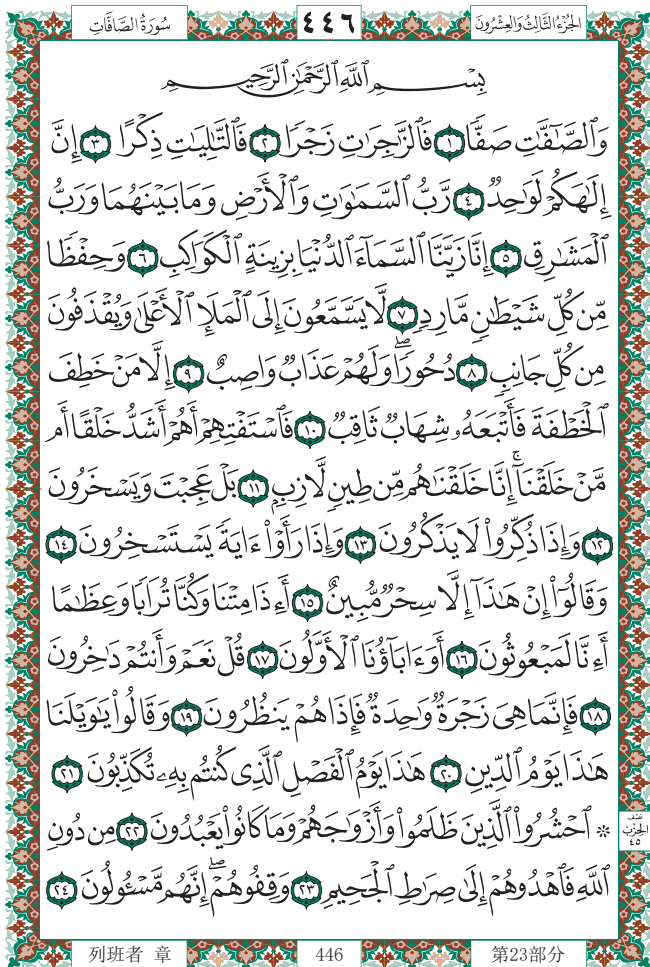 الجُزْءُ الثَّالِثُ وَالعِشْرُونَ ٤٤٦ سُورَةُ الصَّافَّاتِ
بِسْمِ ٱللَّهِ ٱلرَّحْمَٰنِ ٱلرَّحِيمِ
وَٱلصَّٰٓفَّٰتِ صَفًّا ١ فَٱلزَّٰجِرَٰتِ زَجْرًا ٢ فَٱلتَّٰلِيَٰتِ ذِكْرًا ٣ إِنَّ
إِلَٰهَكُمْ لَوَٰحِدٌ ٤ رَّبُّ ٱلسَّمَٰوَٰتِ وَٱلْأَرْضِ وَمَا بَيْنَهُمَا وَرَبُّ
ٱلْمَشَٰرِقِ ٥ إِنَّا زَيَّنَّا ٱلسَّمَآءَ ٱلدُّنْيَا بِزِينَةٍ ٱلْكَوَاكِبِ ٦ وَحِفْظًا
مِّن كُلِّ شَيْطَٰنٍ مَّارِدٍ ٧ لَّا يَسَّمَّعُونَ إِلَى ٱلْمَلَإِ ٱلْأَعْلَىٰ وَيُقْذَفُونَ
مِن كُلِّ جَانِبٍ ٨ دُحُورًاۖ وَلَهُمْ عَذَابٌ وَاصِبٌ ٩ إِلَّا مَنْ خَطِفَ
ٱلْخَطْفَةَ فَأَتْبَعَهُۥ شِهَابٌ ثَاقِبٌ ١٠ فَٱسْتَفْتِهِمْ أَهُمْ أَشَدُّ خَلْقًا أَم
مَّنْ خَلَقْنَآۚ إِنَّا خَلَقْنَٰهُم مِّن طِينٍ لَّازِبٍۭ ١١ بَلْ عَجِبْتَ وَيَسْخَرُونَ
١٢ وَإِذَا ذُكِّرُوا۟ لَا يَذْكُرُونَ ١٣ وَإِذَا رَأَوْا۟ ءَايَةً يَسْتَسْخِرُونَ ١٤
وَقَالُوٓا۟ إِنْ هَٰذَآ إِلَّا سِحْرٌ مُّبِينٌ ١٥ أَءِذَا مِتْنَا وَكُنَّا تُرَابًا وَعِظَٰمًا
أَءِنَّا لَمَبْعُوثُونَ ١٦ أَوَءَابَآؤُنَا ٱلْأَوَّلُونَ ١٧ قُلْ نَعَمْ وَأَنتُمْ دَٰخِرُونَ
١٨ فَإِنَّمَا هِىَ زَجْرَةٌ وَٰحِدَةٌ فَإِذَا هُمْ يَنظُرُونَ ١٩ وَقَالُوا۟ يَٰوَيْلَنَا
هَٰذَا يَوْمُ ٱلدِّينِ ٢٠ هَٰذَا يَوْمُ ٱلْفَصْلِ ٱلَّذِى كُنتُم بِهِۦ تُكَذِّبُونَ ٢١
۞ ٱحْشُرُوا۟ ٱلَّذِينَ ظَلَمُوا۟ وَأَزْوَٰجَهُمْ وَمَا كَانُوا۟ يَعْبُدُونَ ٢٢ مِن دُونِ
نصف الحزب ٤٥
ٱللَّهِ فَٱهْدُوهُمْ إِلَىٰ صِرَٰطِ ٱلْجَحِيمِ ٢٣ وَقِفُوهُمْۖ إِنَّهُم مَّسْـُٔولُونَ ٢٤
列班者 章 446 第23部分